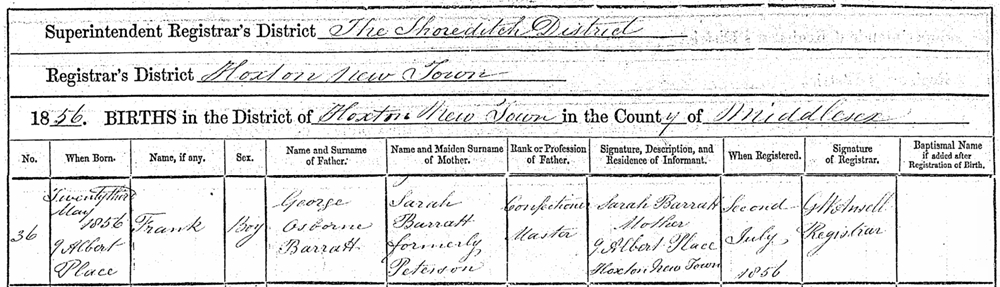 Superintendent Registrar's District The Shoreditch District
Registrar's District Hoxton New Town
1856. BIRTHS in the District of Hoxton New Town in the County of Middlesex
No.
When Born.
Name, if any.
Sex.
Name and Surname
of Father.
Name and Maiden Surname
of Mother.
Rank or Profession
of Father.
Signature, Description, and
Residence of Informant.
When Registered.
Signature
of Registrar.
Baptismal Name
if added after
Registration of Birth.
36
Twentythird
May
1856
9 Albert
Place
Frank
Boy
George
Osborne
Barratt
Sarah
Barratt
formerly
Peterson
Confectioner
Master
Sarah Barratt
Mother
9 Albert Place
Hoxton New Town
Second
July,
1856
Ansell
Registrar